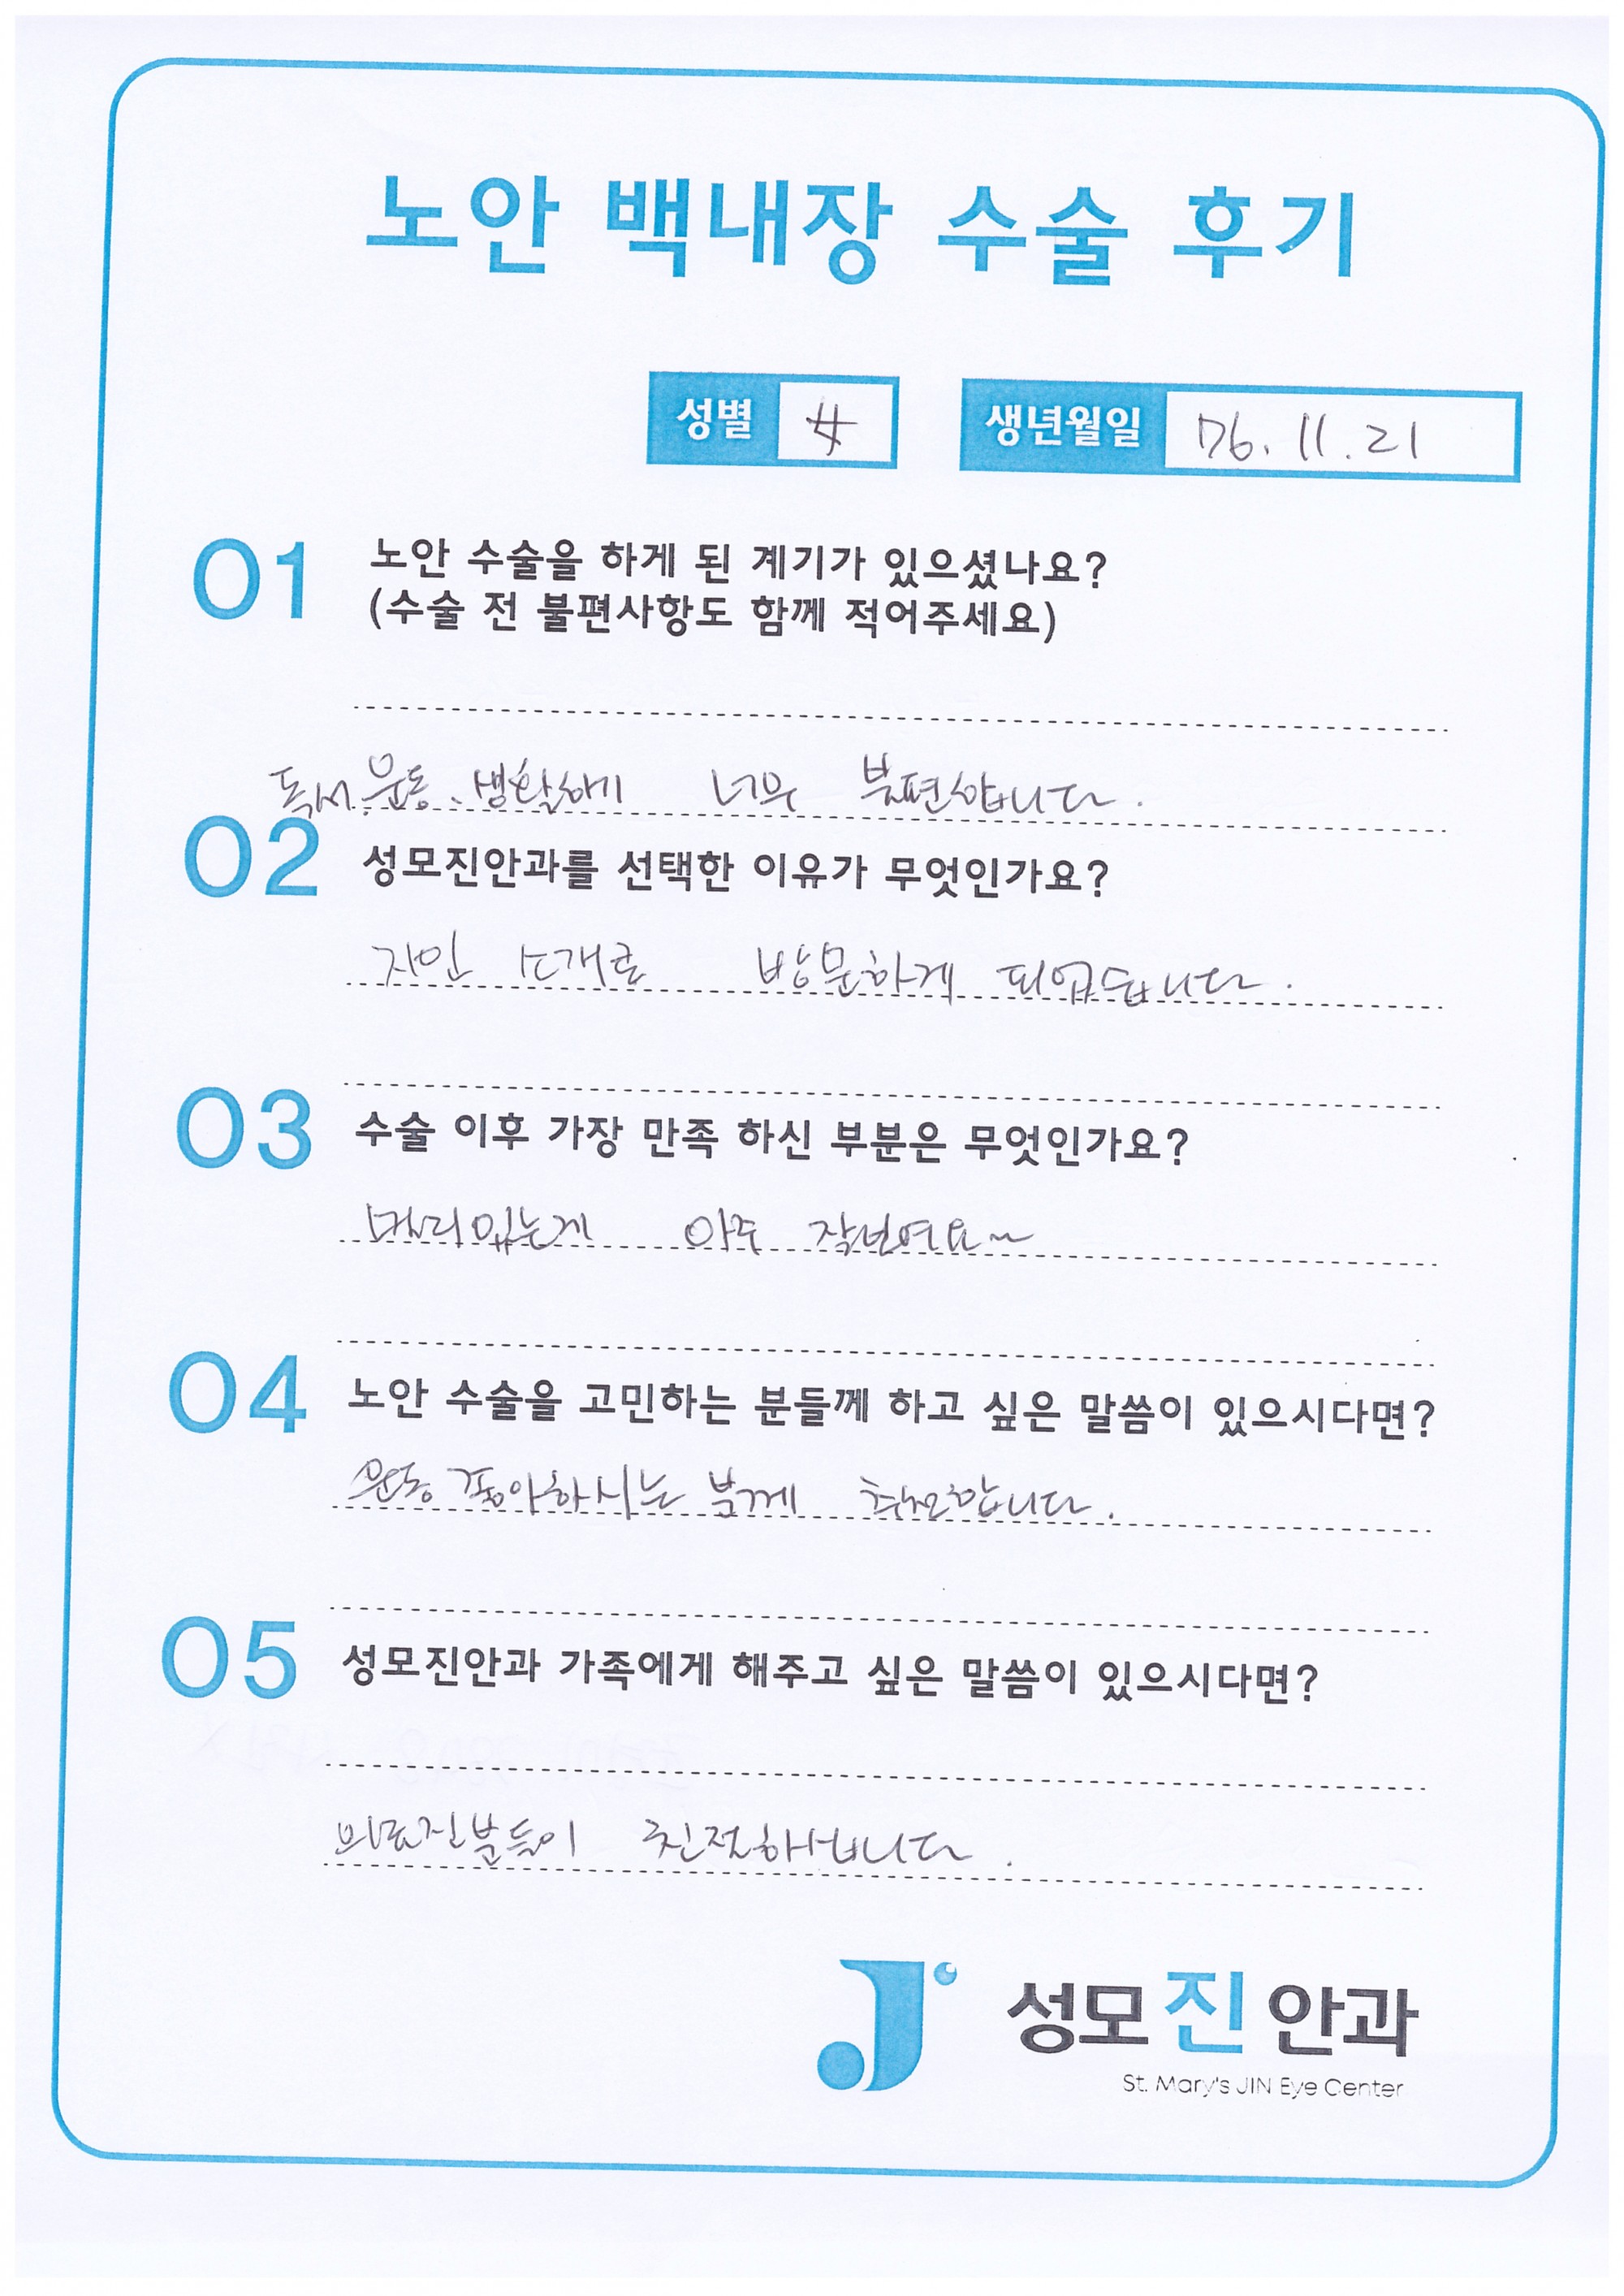 노안 백내장 수술 후기
성별 女 생년월일 76. 11. 21
01 노안 수술을 하게 된 계기가 있으셨나요?
(수술 전 불편사항도 함께 적어주세요)
독서. 운동. 생활하기 너무 불편합니다.
02 성모진안과를 선택한 이유가 무엇인가요?
지인 소개로 방문하게 되었습니다.
03 수술 이후 가장 만족 하신 부분은 무엇인가요?
멀리있는게 아주 잘보여요~
04 노안 수술을 고민하는 분들께 하고 싶은 말씀이 있으시다면?
운동 좋아하시는 분께 추천합니다.
05 성모진안과 가족에게 해주고 싶은 말씀이 있으시다면?
의료진분들이 친절하십니다.
성모진안과
St. Mary's JIN Eye Center